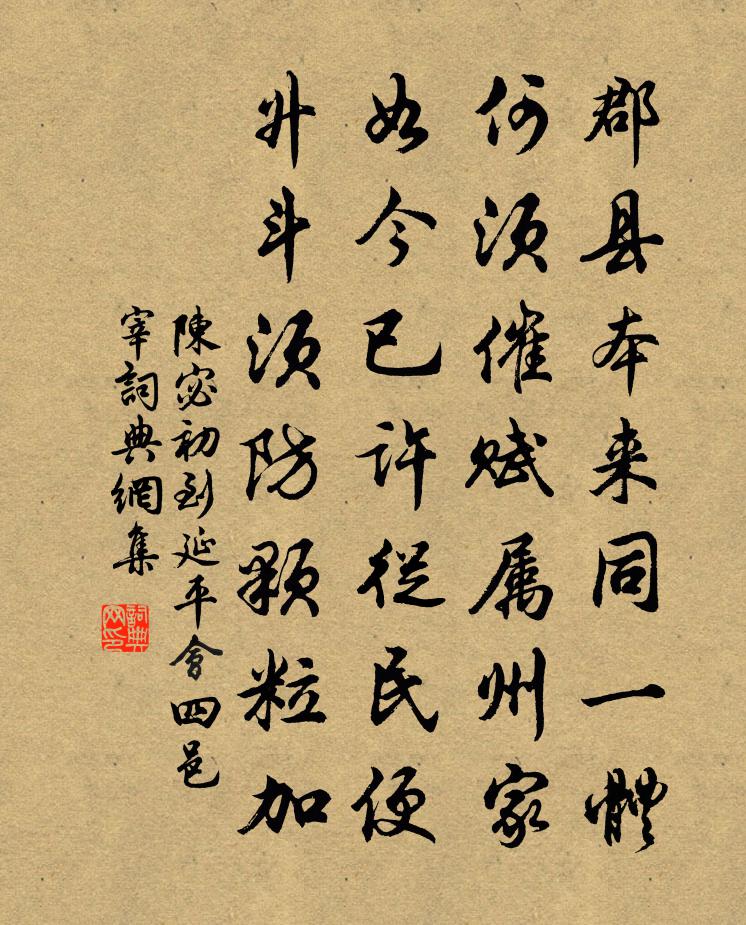 郡县本来同一體
何须催赋属州家
如今已许從民便
升斗须防颗粒加
陳宓初到延平會四邑
宰詞典網集
詞典网印